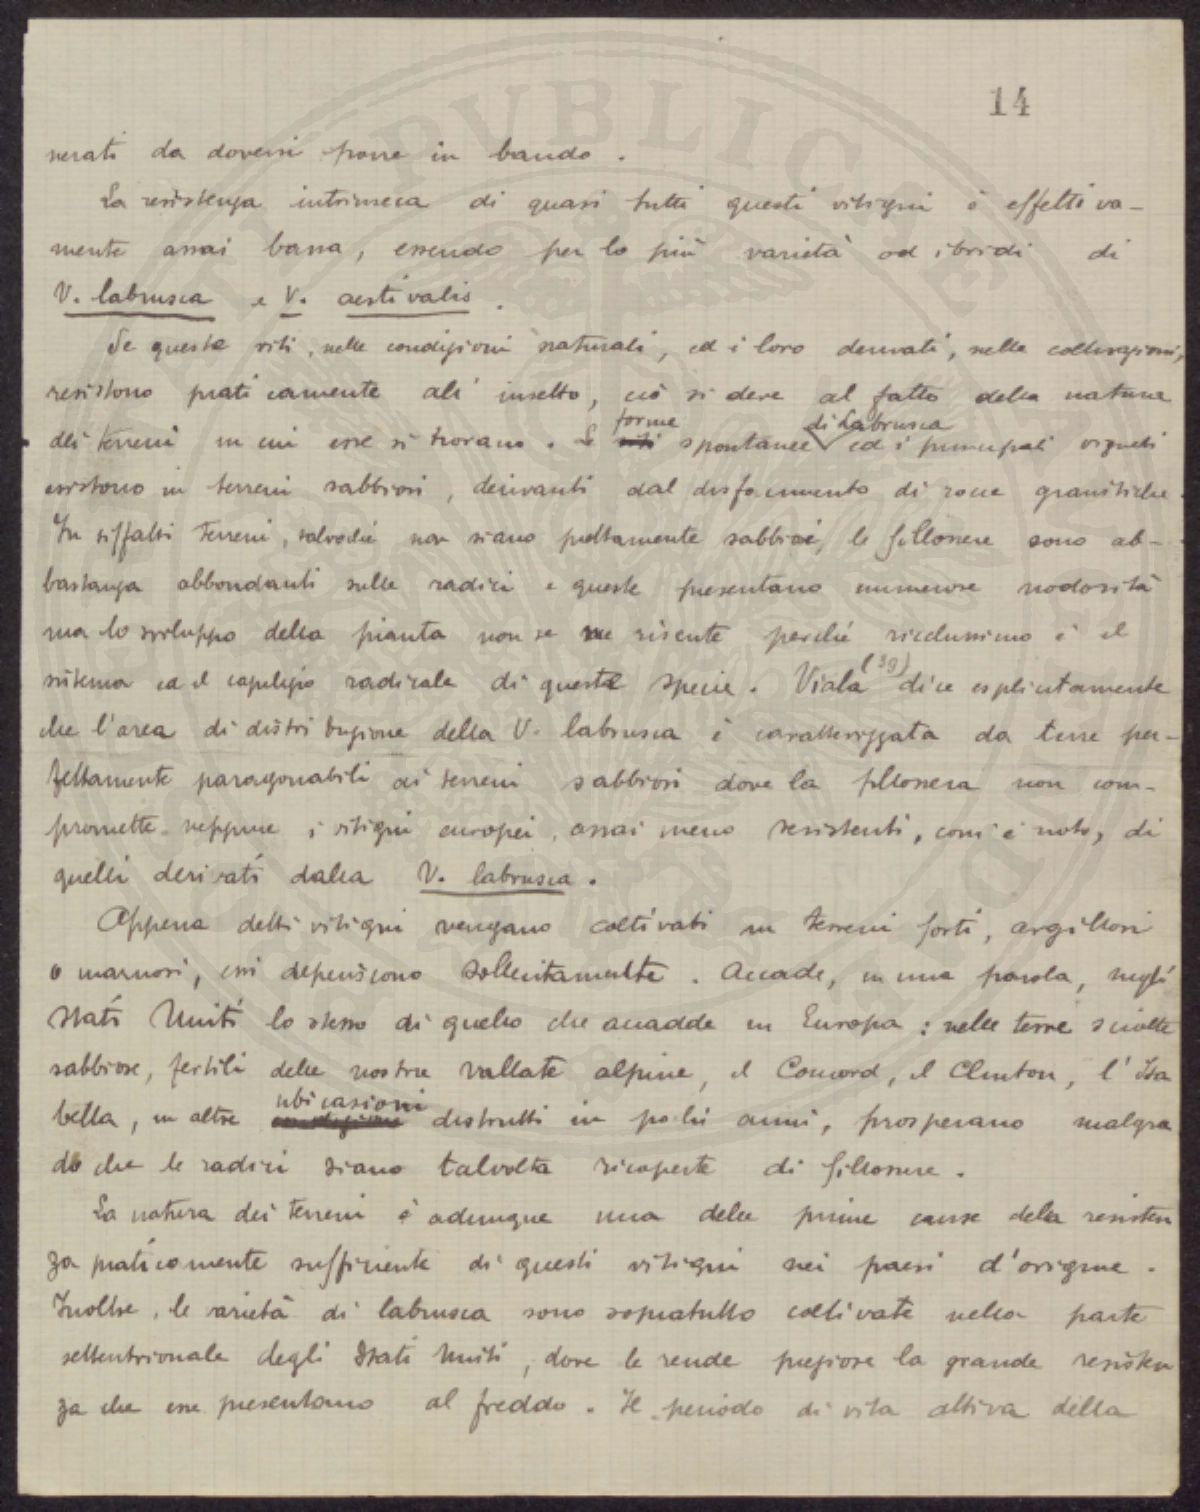 14
nerati da doversi porre in bando.
La resistenza intrinseca di quasi tutti questi vitigni è effettiva-
mente assai bassa, essendo per lo più varietà od ibridi di
V. labrusca e V. aestivalis.
Se queste viti, nelle condizioni naturali, ed i loro derivati, nelle coltivazioni,
resistono praticamente all' insetto, ciò si deve al fatto della natura
dei terreni in cui esse si trovano. Le viti forme spontanee di Labrusca ed i principali vigneti
esistono in terreni sabbiosi, derivanti dal disfacimento di rocce granitiche.
In siffatti terreni, salvochè non siano prettamente sabbiosi, le fillossere sono ab-
bastanza abbondanti sulle radici e queste presentano numerose nodosità
ma lo sviluppo della pianta non se ne risente perchè ricchissimo è il
sistema ed il capillizio radicale di queste specie. Viala (39) dice esplicitamente
che l'area di distribuzione della V. labrusca è caratterizzata da terre per-
fettamente paragonabili ai terreni sabbiosi dove la fillossera non com-
promette neppure i vitigni europei, assai meno resistenti, com'è noto, di
quelli derivati dalla V. labrusca.
Appena detti vitigni vengano coltivati in terreni forti, argillosi
o marnosi, essi deperiscono sollecitamente. Accade, in una parola, negli
Stati Uniti lo stesso di quello che accadde in Europa: nelle terre sciolte
sabbiose, fertili delle nostre vallate alpine, il Concord, il Clinton, l' Isa
bella, in altre condizioni ubicazioni distrutti in pochi anni, prosperano malgra
do che le radici siano talvolta ricoperte di fillossere.
La natura dei terreni è adunque una delle prime cause della resisten
za praticamente sufficiente di questi vitigni nei paesi d'origine.
Inoltre, le varietà di labrusca sono sopratutto coltivate nella parte
settentrionale degli Stati Uniti, dove le rende preziose la grande resisten
za che esse presentano al freddo. Il periodo di vita attiva della